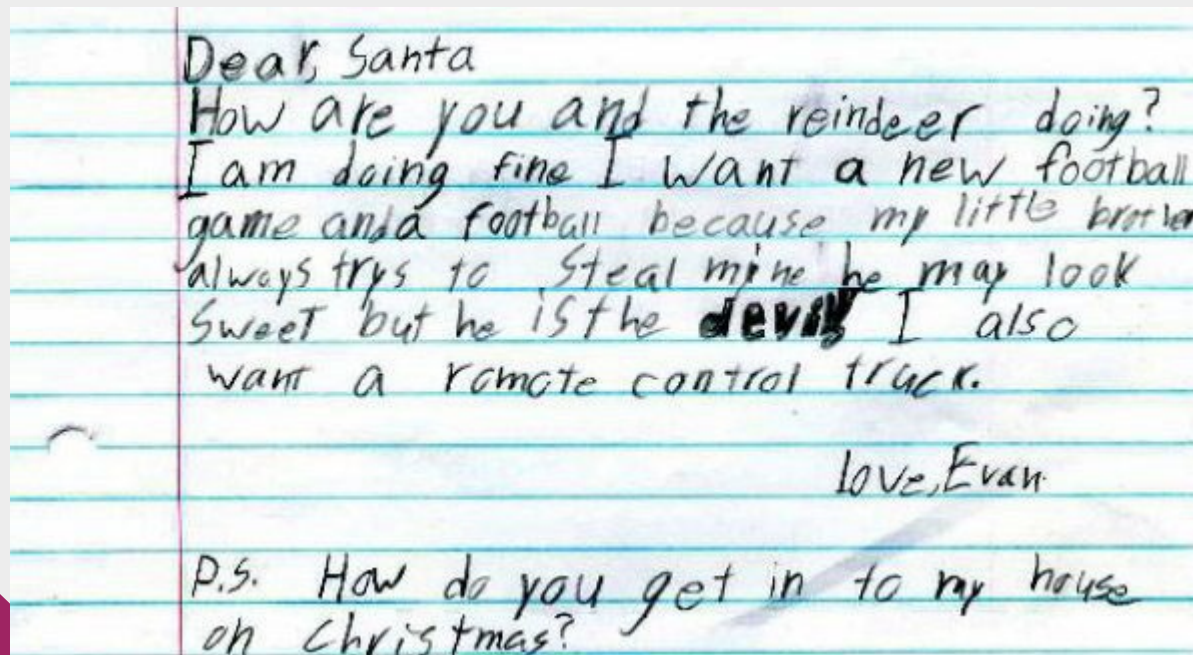 Dear, Santa
How are you and the reindeer doing?
I am doing fine I want a new football
game and a football because my little brother
always trys to steal mine he may look
sweet but he is the devil I also
want a remote control truck.
love, Evan
P.S. How do you get in to my house
on Christmas?